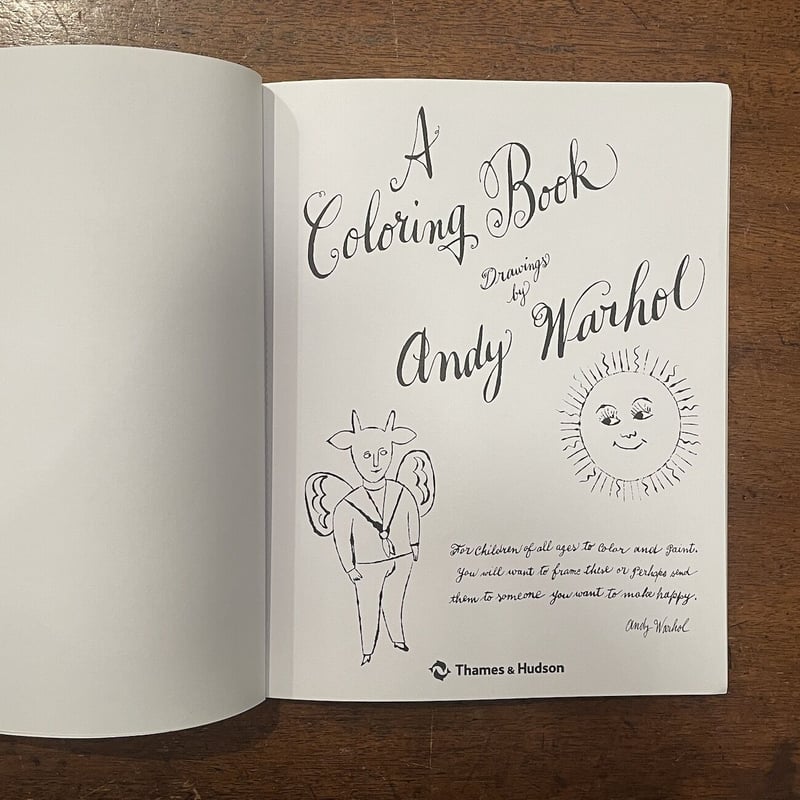 A
Coloring Book
Drawings
by
Andy Warhol
For Children of all ages to Color and Paint.
You will want to frame these or Perhaps send
them to someone you want to make happy.
Andy Warhol
Thames & Hudson